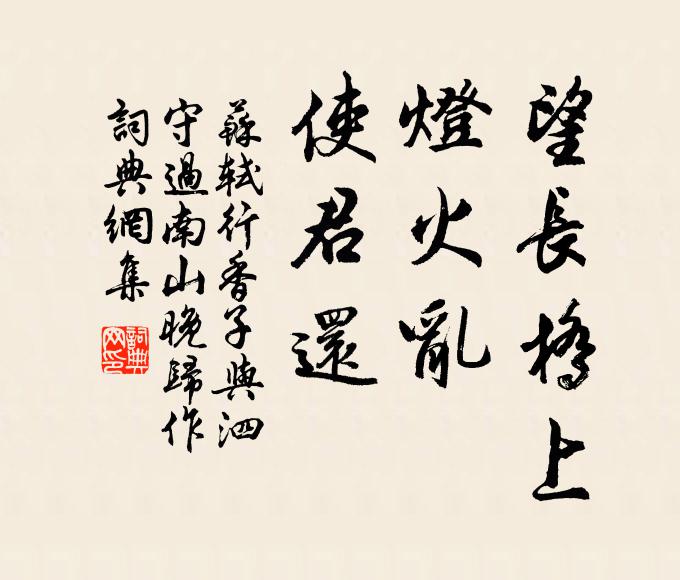 望長橋上
燈火亂
使君還
蘇軾行香子與泗
守過南山晚歸作
詞典網集
詞典
网印